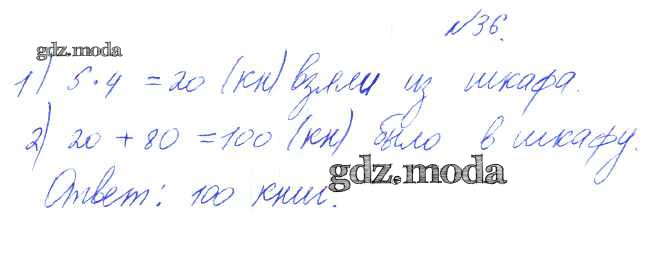 №36.
gdz.moda
1) 5·4 = 20 (кн) взяли из шкафа.
2) 20 + 80 = 100 (кн) было в шкафу.
gdz.moda
Ответ: 100 книг.